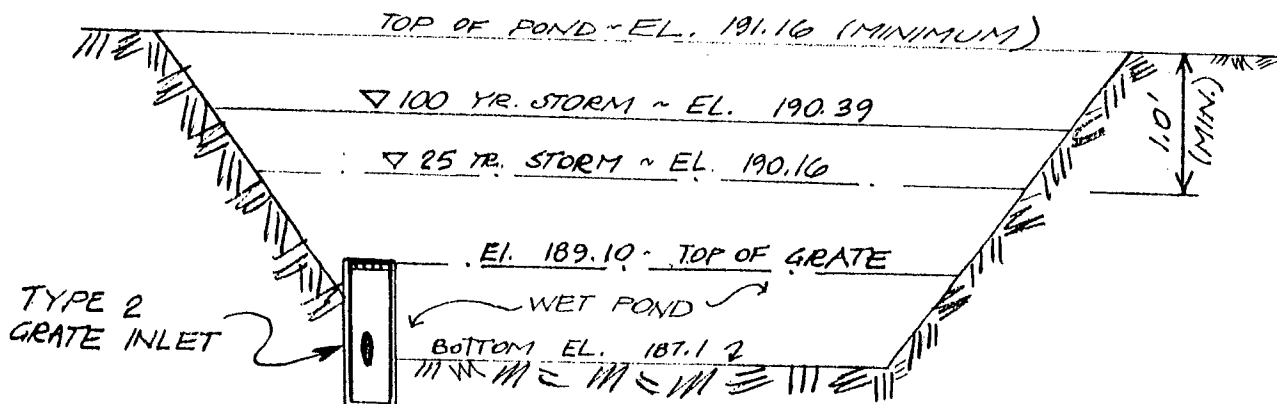 TOP OF POND ~ EL. 191.16 (MINIMUM)
▽ 100 YR. STORM ~ EL. 190.39
1.0'
(MIN.)
▽ 25 YR. STORM ~ EL. 190.16
El. 189.10 - TOP OF GRATE
WET POND
TYPE 2
GRATE INLET
BOTTOM EL. 187.1